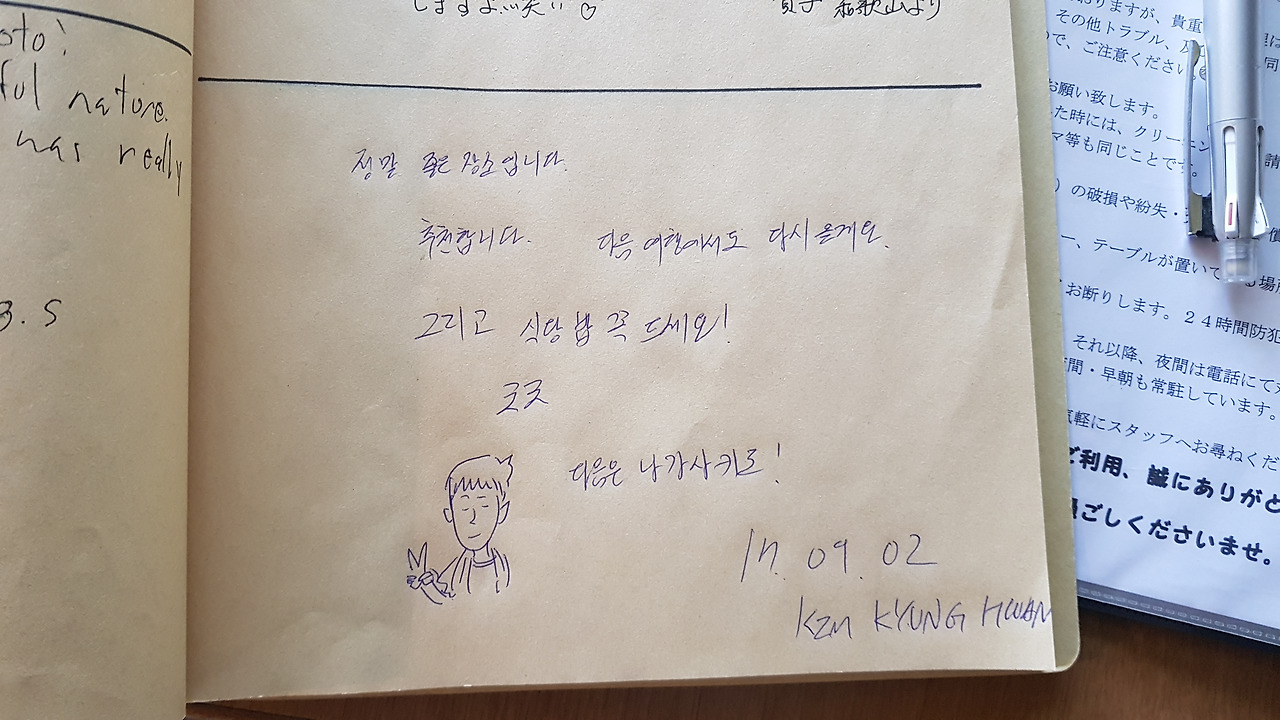 しますよ 笑い♡
和歌山より
oto!
ful nature.
was really
3. S
정말 좋은 장소입니다.
추천합니다. 다음 여행에서도 다시 올게요.
그리고 식당 밥 꼭 드세요!
굿굿
다음은 나가사키로!
17. 09. 02
KIM KYUNG HWAN
ありますが、貴重
その他トラブル、
で、ご注意ください。
お願い致します。
た時には、クリーニン
マ等も同じことです。
請
)の破損や紛失・
償
ー、テーブルが置いて
る場所
お断りします。24時間防犯
それ以降、夜間は電話にて対
間・早朝も常駐しています。
気軽にスタッフへお尋ねくだ
ご利用、誠にありがと
過ごしくださいませ。